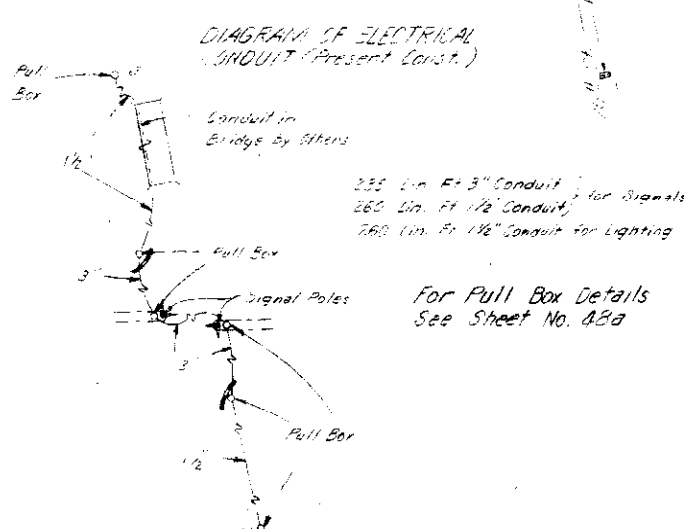 DIAGRAM OF ELECTRICAL
CONDUIT (Present Const.)
Pull
Box
Conduit in
Bridge by Others
1½"
235 Lin. Ft 3" Conduit
260 Lin. Ft 1½" Conduit } for Signals
760 Lin. Ft 1½" Conduit for Lighting
Pull Box
3"
Signal Poles
For Pull Box Details
See Sheet No. 48a
3"
Pull Box
1½"